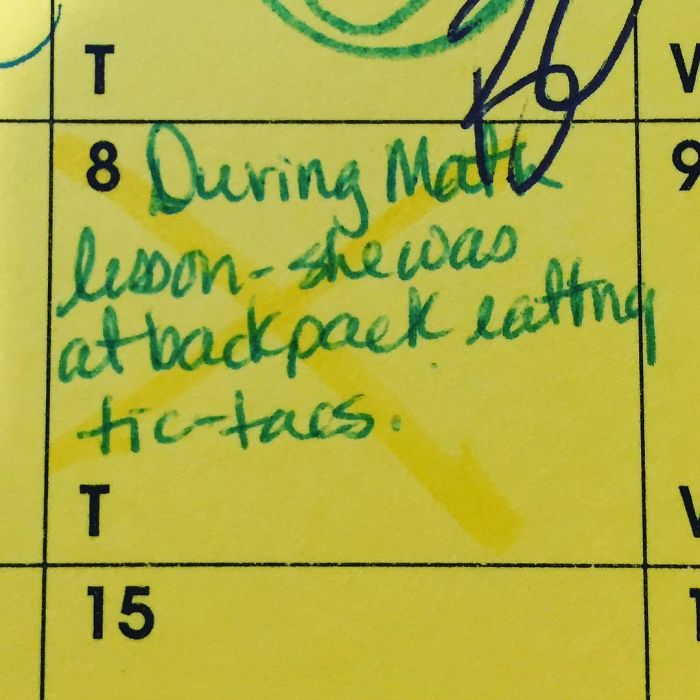 T
8 During Math
lesson - she was
at backpack eating
tic-tacs.
T
15
9